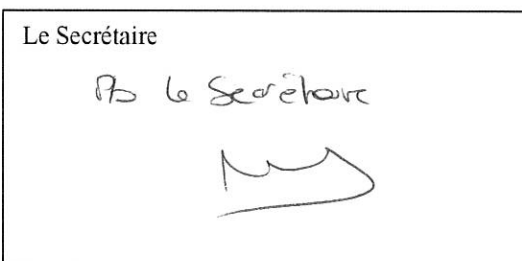 Le Secrétaire
Po le Secrétaire